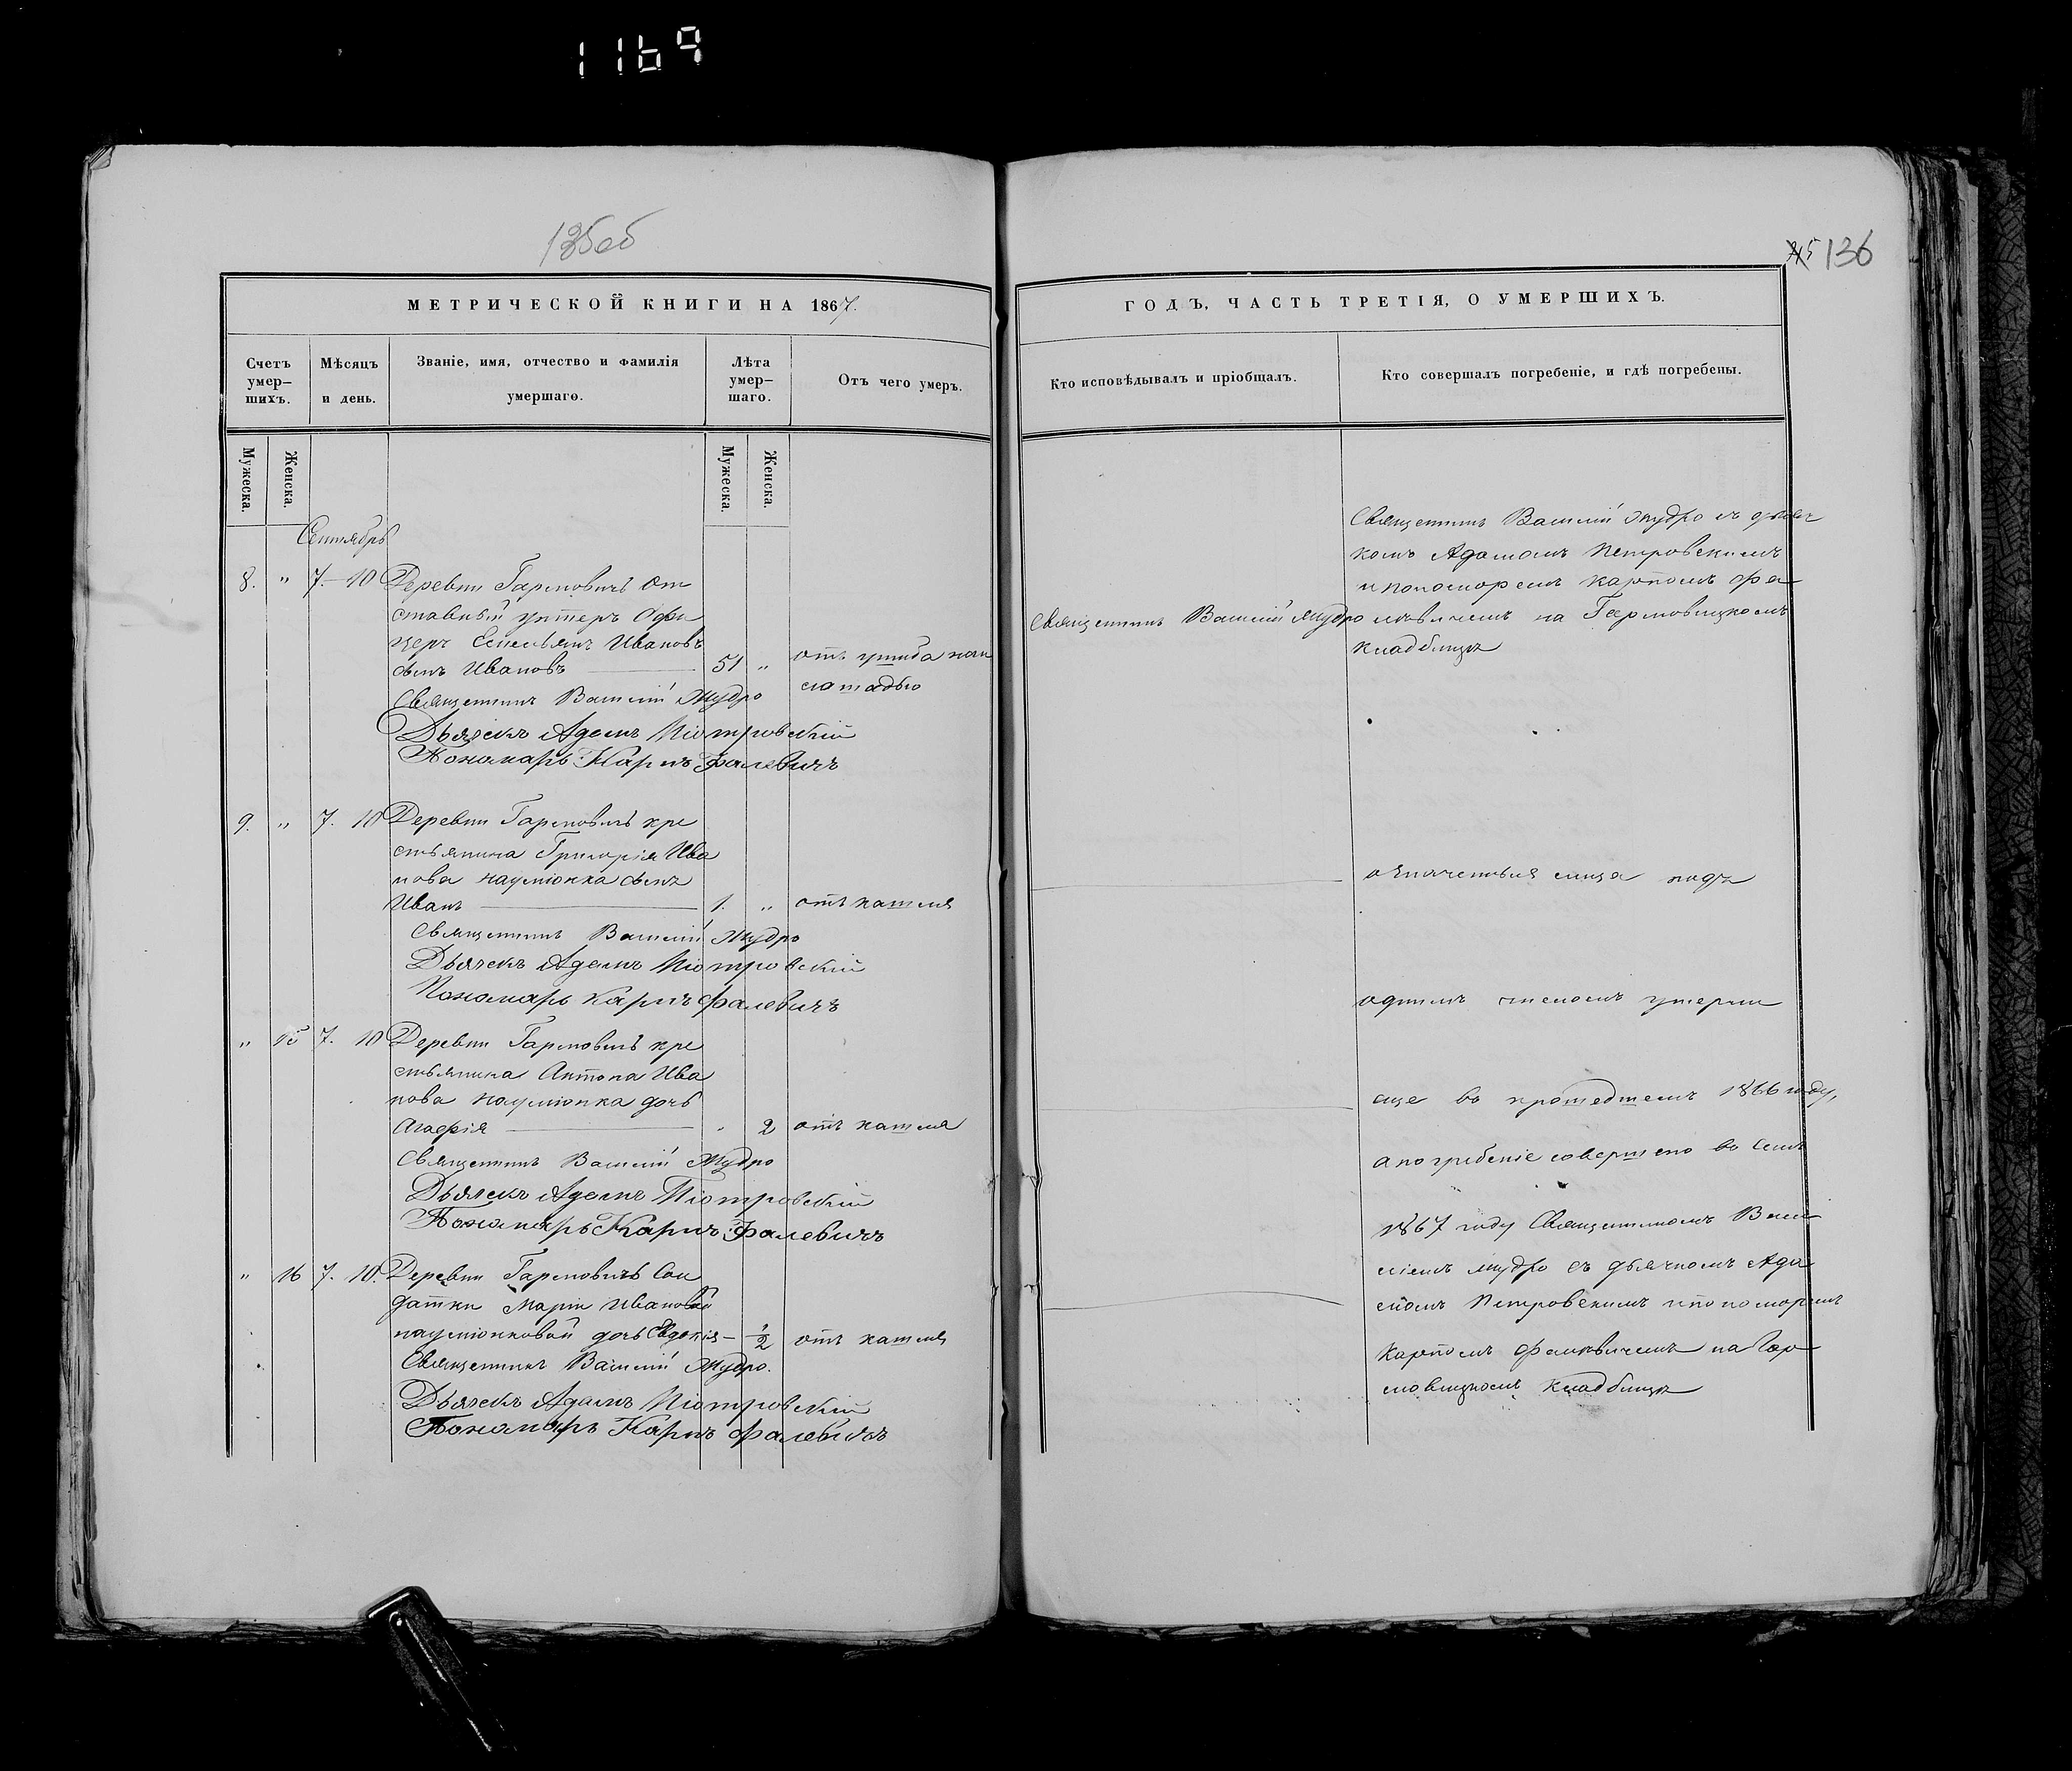 1169
135об
МЕТРИЧЕСКОЙ КНИГИ НА 1867.
Счетъ умер-шихъ.
Мѣсяцъ и день.
Званіе, имя, отчество и фамилія умершаго.
Лѣта умер-шаго.
Отъ чего умеръ.
Мужеска.
Женска.
Мужеска.
Женска.
Сентябрь
8. " 7.-10 Деревни Гармовичъ От
ставный унтеръ Офи
церъ Емельянъ Ивановъ
сынъ Ивановъ 51 " отъ ушиба
лошадью
Священникъ Василій Мудро
Дьячекъ Адамъ Піотровскій
Пономарь Карпъ Фалевичъ
9. " 7. 10 Деревни Гармовичъ кре
стьянина Григорія Ива
нова сынъ
Иванъ 1. " отъ кашля
Священникъ Василій Мудро
Дьячекъ Адамъ Піотровскій
Пономарь Карпъ Фалевичъ
" 15 7. 10 Деревни Гармовичъ кре
стьянина Антона Ива
нова дочь
Агафія " 2 отъ кашля
Священникъ Василій Мудро
Дьячекъ Адамъ Піотровскій
Пономарь Карпъ Фалевичъ
" 16 7. 10. Деревни Гармовичъ Сол
датки Маріи Ивановой
дочь Евдокія - 1/2 отъ кашля
Священникъ Василій Мудро.
Дьячекъ Адамъ Піотровскій
Пономарь Карпъ Фалевичъ
136
ГОДЪ, ЧАСТЬ ТРЕТІЯ, О УМЕРШИХЪ.
Кто исповѣдывалъ и пріобщалъ.
Кто совершалъ погребеніе, и гдѣ погребены.
Священникъ Василій Мудро
Священникъ Василій Мудро съ дьяч
комъ Адамомъ Петровскимъ
и пономоремъ Карпомъ Фа
лѣвичемъ на Гармовицкомъ
кладбищѣ
означенныя лица подъ
однимъ числомъ умерли
еще въ прошедшемъ 1866 году,
а погребеніе совершено въ семъ
1867 году Священникомъ Васи
ліемъ Мудро съ дьячкомъ Ада
момъ Петровскимъ и пономоремъ
Карпомъ Фалѣвичемъ на Гар
мовицкомъ кладбищѣ